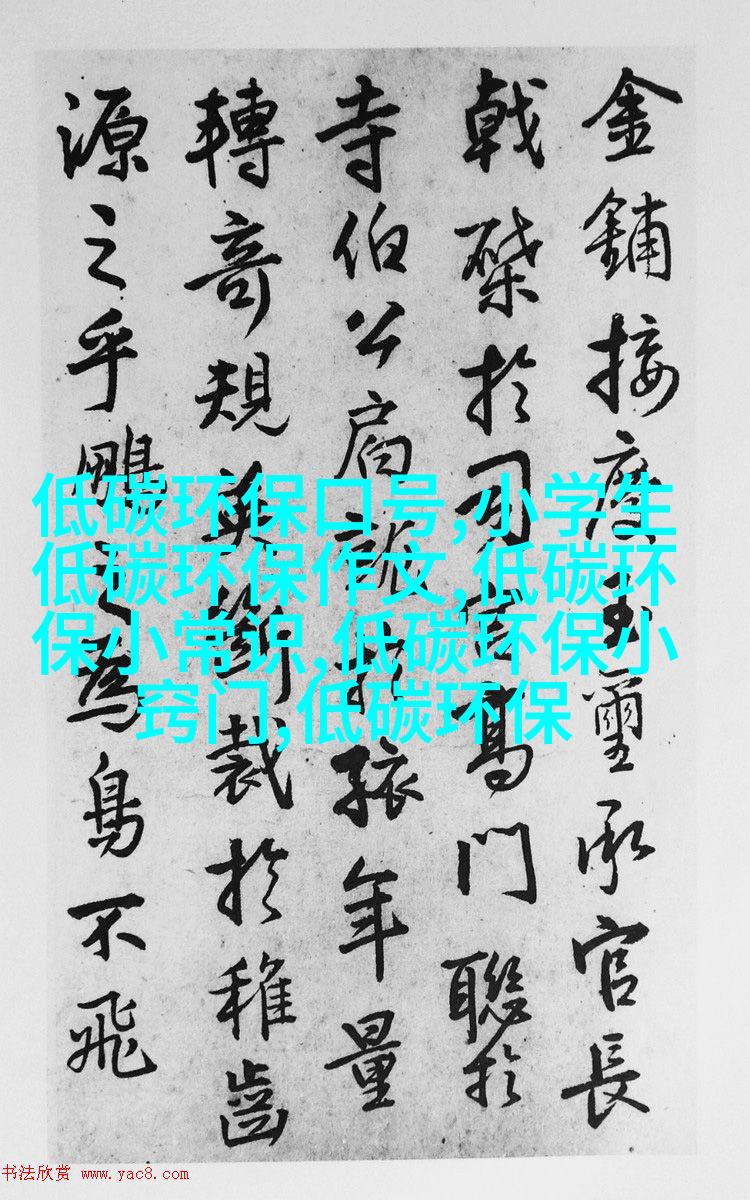 金鋪接慶玉璽承官長
戟棨於司高門聯於
寺伯公肩就孩年量
轉奇規斷裁於稚齒
源之乎鵬之為鳥不飛
低碳环保口号,小学生
低碳环保作文,低碳环
保小常识,低碳环保小
窍门,低碳环保
书法欣赏 www.yac8.com